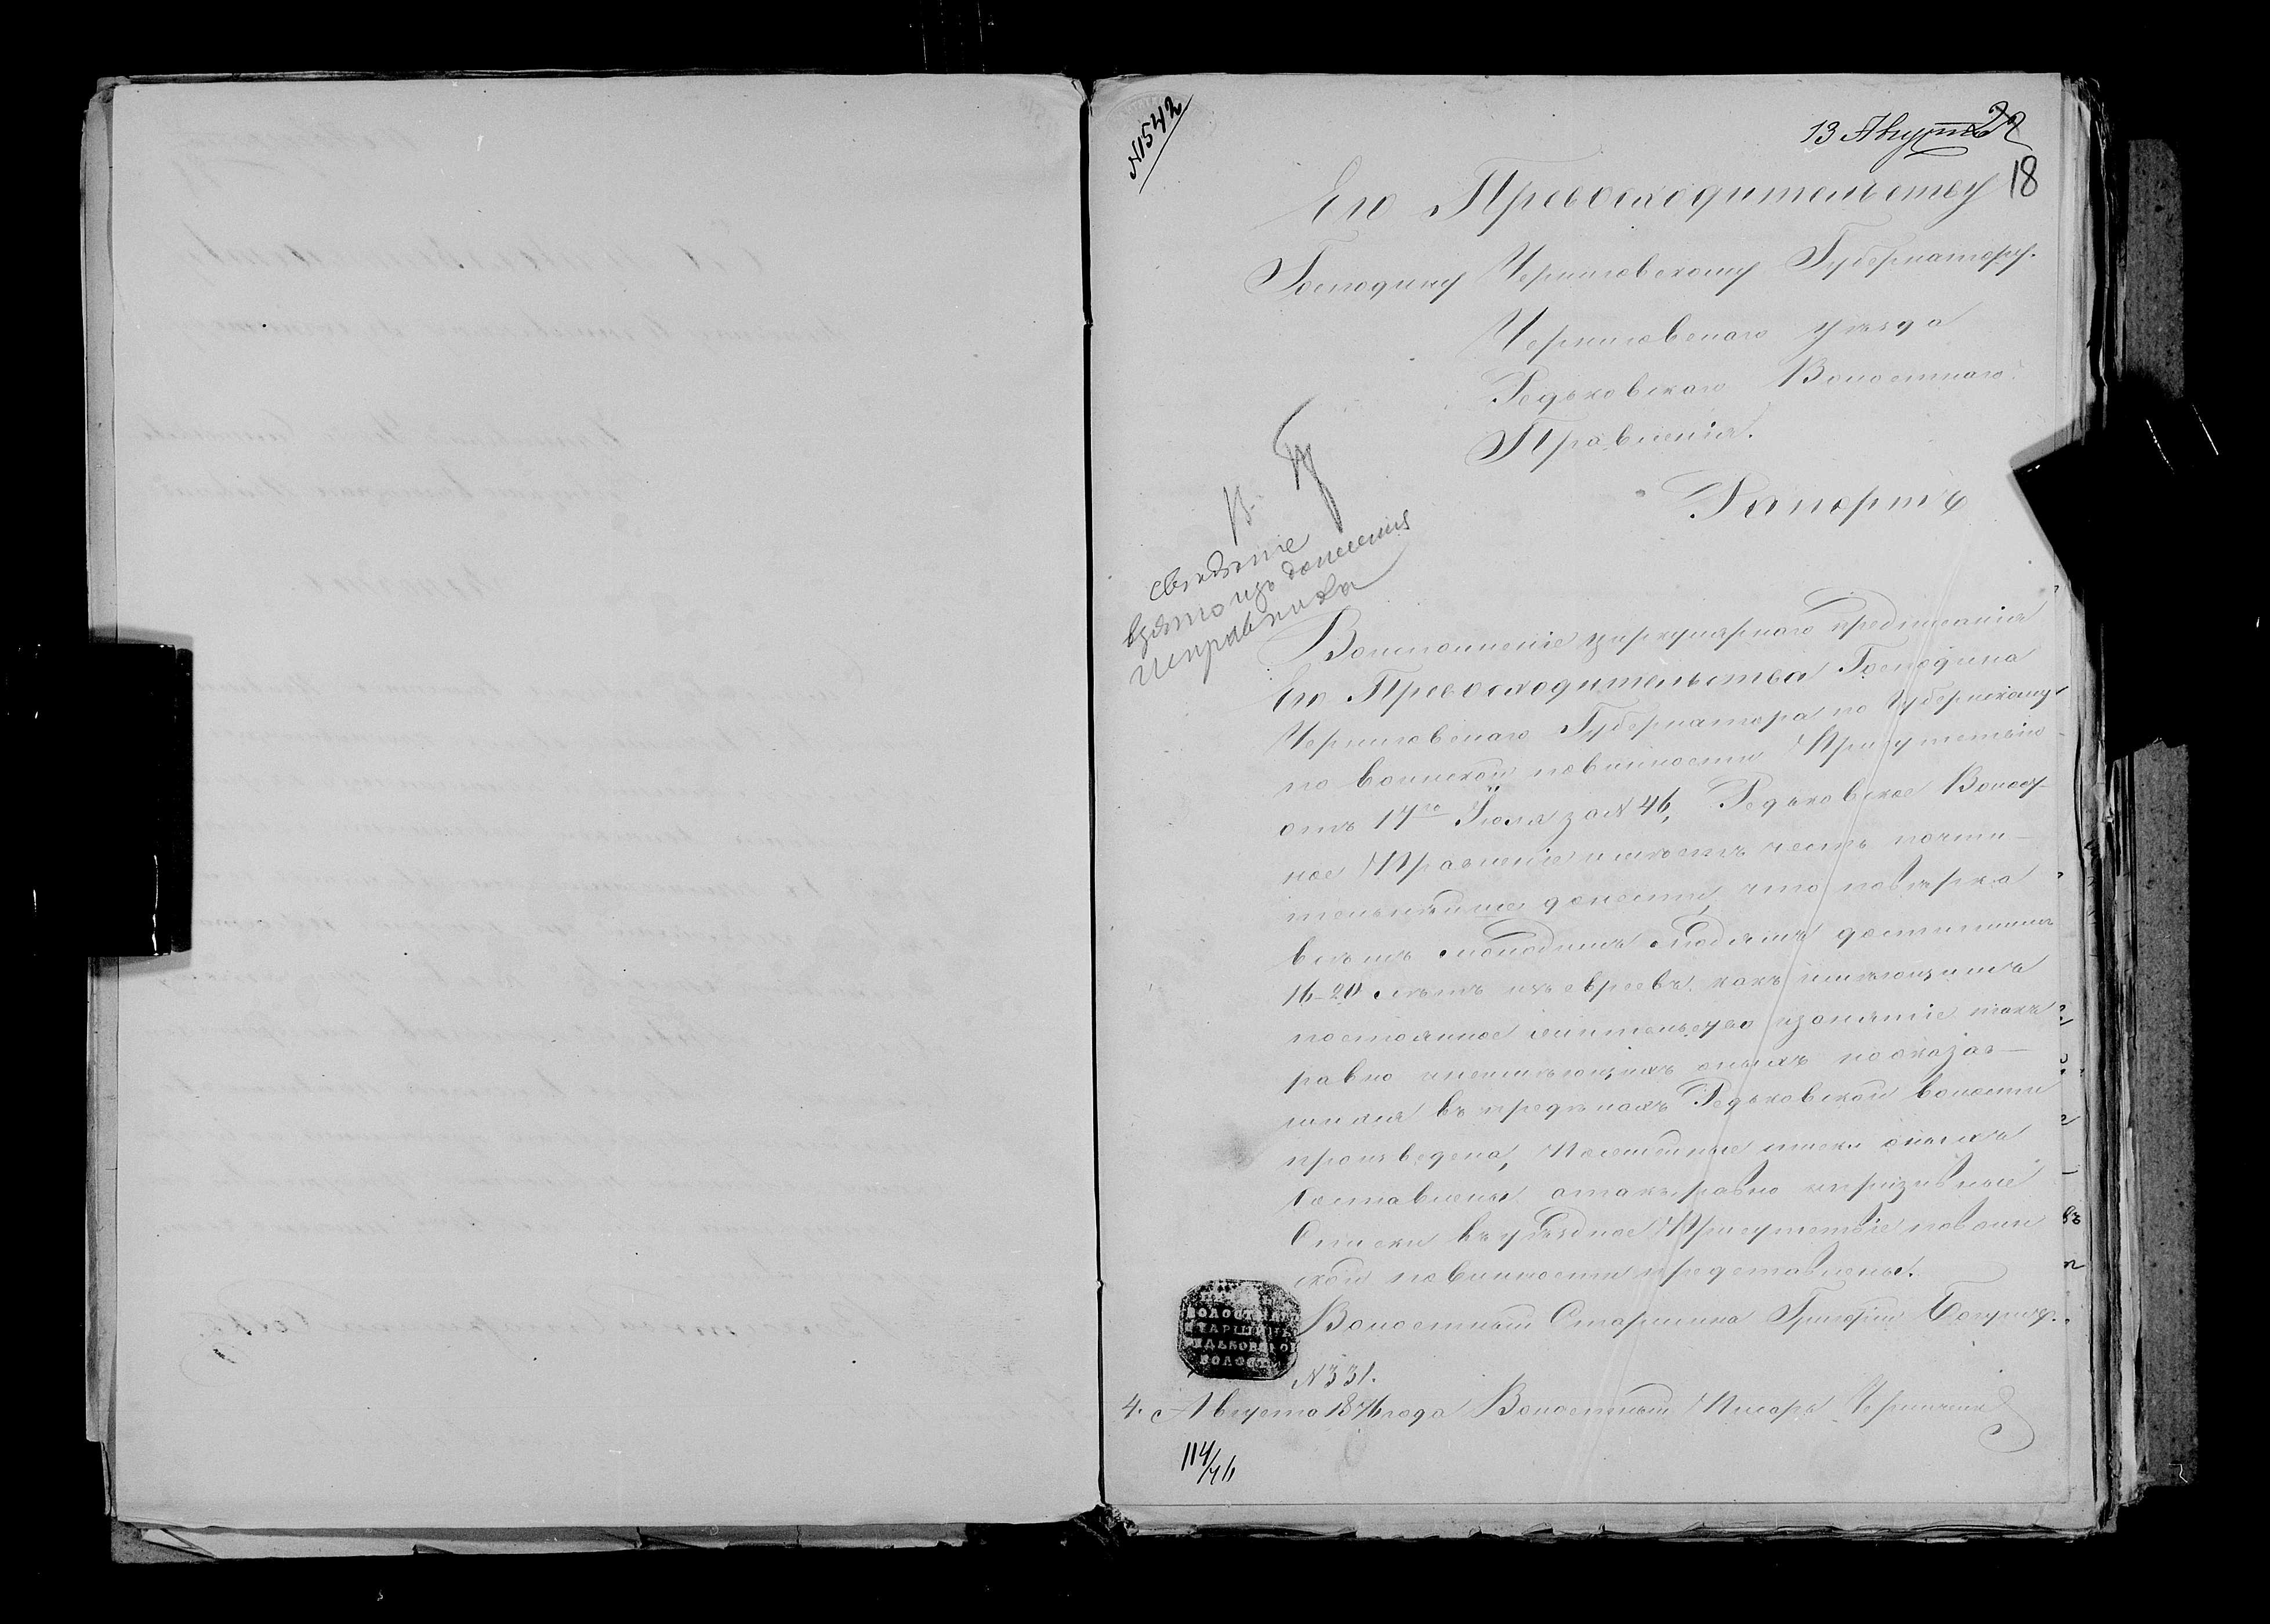 №1542
13 Августа
22
18
Его Превосходительству
Господину Черниговскому Губернатору.
Черниговскаго уѣзда
Редьковскаго Волостнаго
Правленія.
Рапортъ
свѣденіе
взято изъ донесенія
Исправника
Воисполненіе циркулярнаго предписанія
Его Превосходительства Господина
Черниговскаго Губернатора по Губернскому
по воинской повинности Присутствію
отъ 17го Іюля за №46, Редьковское Волост-
ное Правленіе имѣетъ честь почти-
тельнѣйше донести, что повѣрка
всѣмъ молодымъ людямъ достигшимъ
16-20 лѣтъ изъ евреевъ какъ имѣющимъ
постоянное жительство изанятіе такъ
равно инеимѣющихъ оныхъ нооказав-
шихся въ предѣлахъ Редьковской волости
произведена, Посемейные списки оныхъ
Составлены атакъ равно ипризывные
Списки въ уѣздное Присутствіе повоин
ской повинности представлены.
Волостный Старшина Григорій
ВОЛОСТНАГО
СТАРШИНЫ
РЕДЬКОВСКОЙ
ВОЛОСТИ
№331.
4. Августа 1876 года Волостный Писарь
114/76